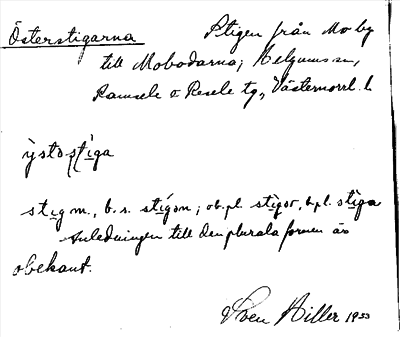 Österstigarna Stigen från Moby
till Mobodarna; Helgums sn,
Ramsele o Resele tg, Västernorrl. l
ỳstostíga
stıg m., b. s. stígən; ob.pl. stìgər, b.pl. stíga
Anledningen till den plurala formen är
obekant.
Sven Hiller 1933